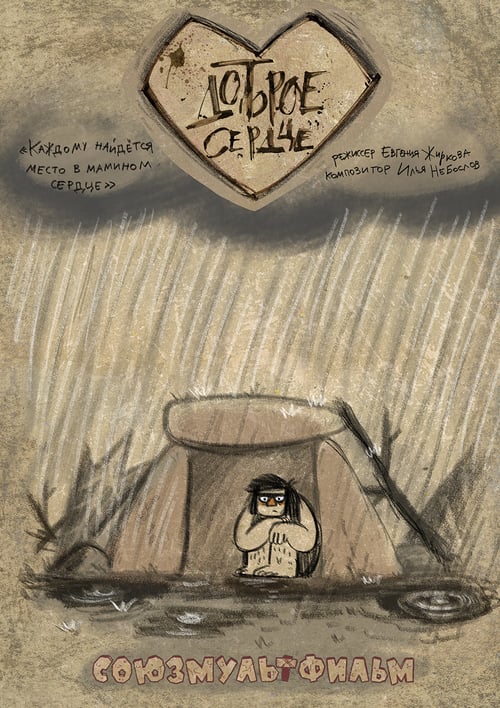 ДОБРОЕ
СЕРДЦЕ
«КАЖДОМУ НАЙДЁТСЯ
МЕСТО В МАМИНОМ
СЕРДЦЕ»
РЕЖИССЕР ЕВГЕНИЯ ЖИРКОВА
КОМПОЗИТОР ИЛЬЯ НЕБОСЛОВ
СОЮЗМУЛЬТФИЛЬМ